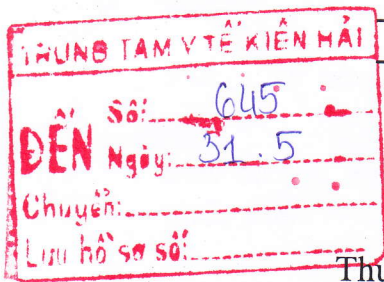 TRUNG TÂM Y TẾ KIÊN HẢI
ĐẾN
Số: 645
Ngày: 31.5
Chuyển:
Lưu hồ sơ số:
Thu